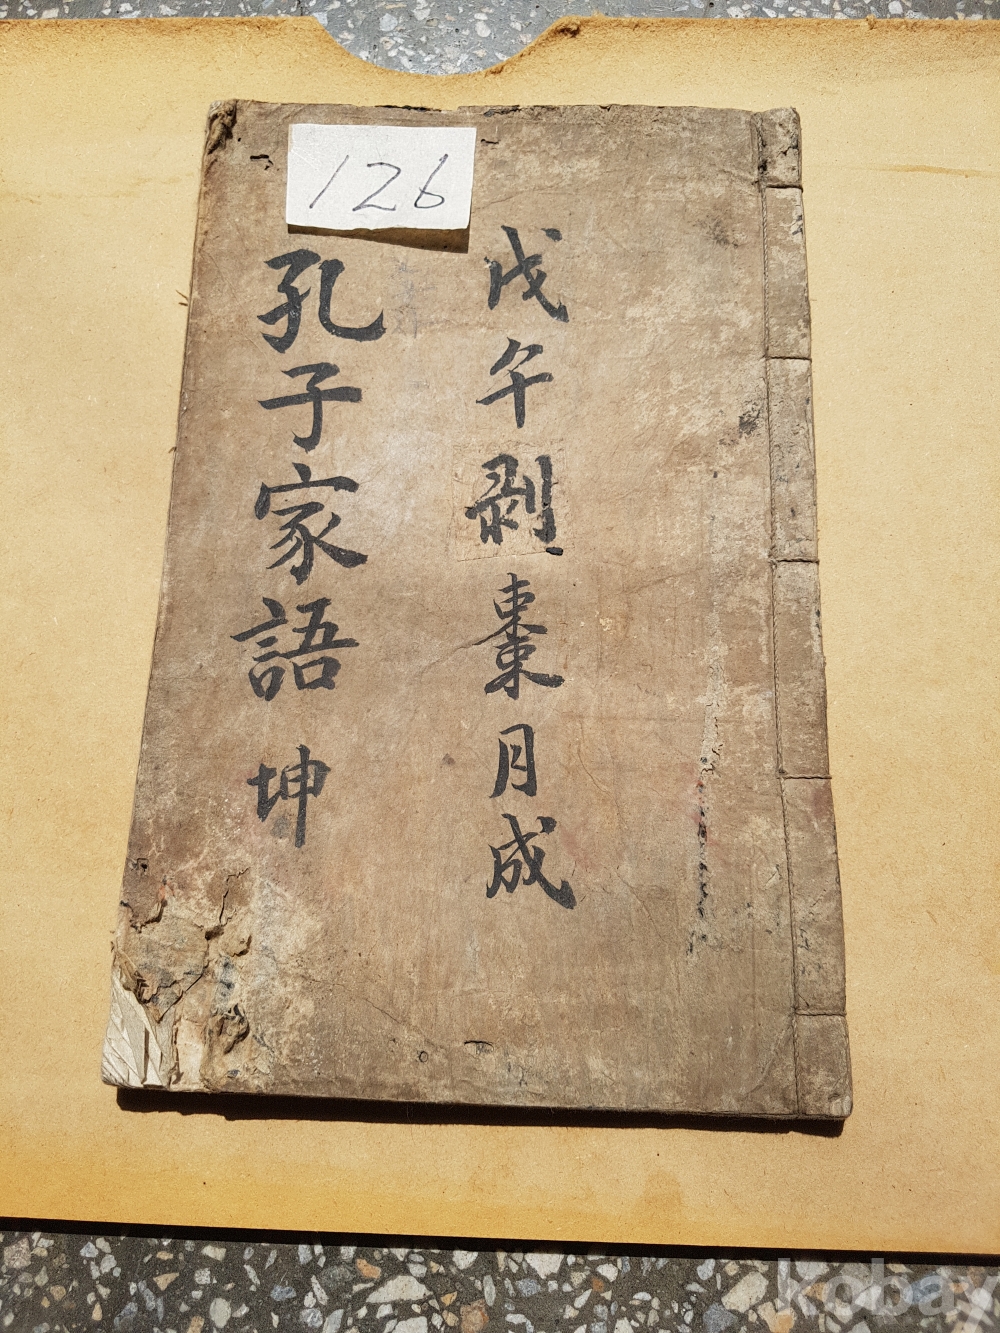 126
戊午剝棗月成
孔子家語 坤
kobay